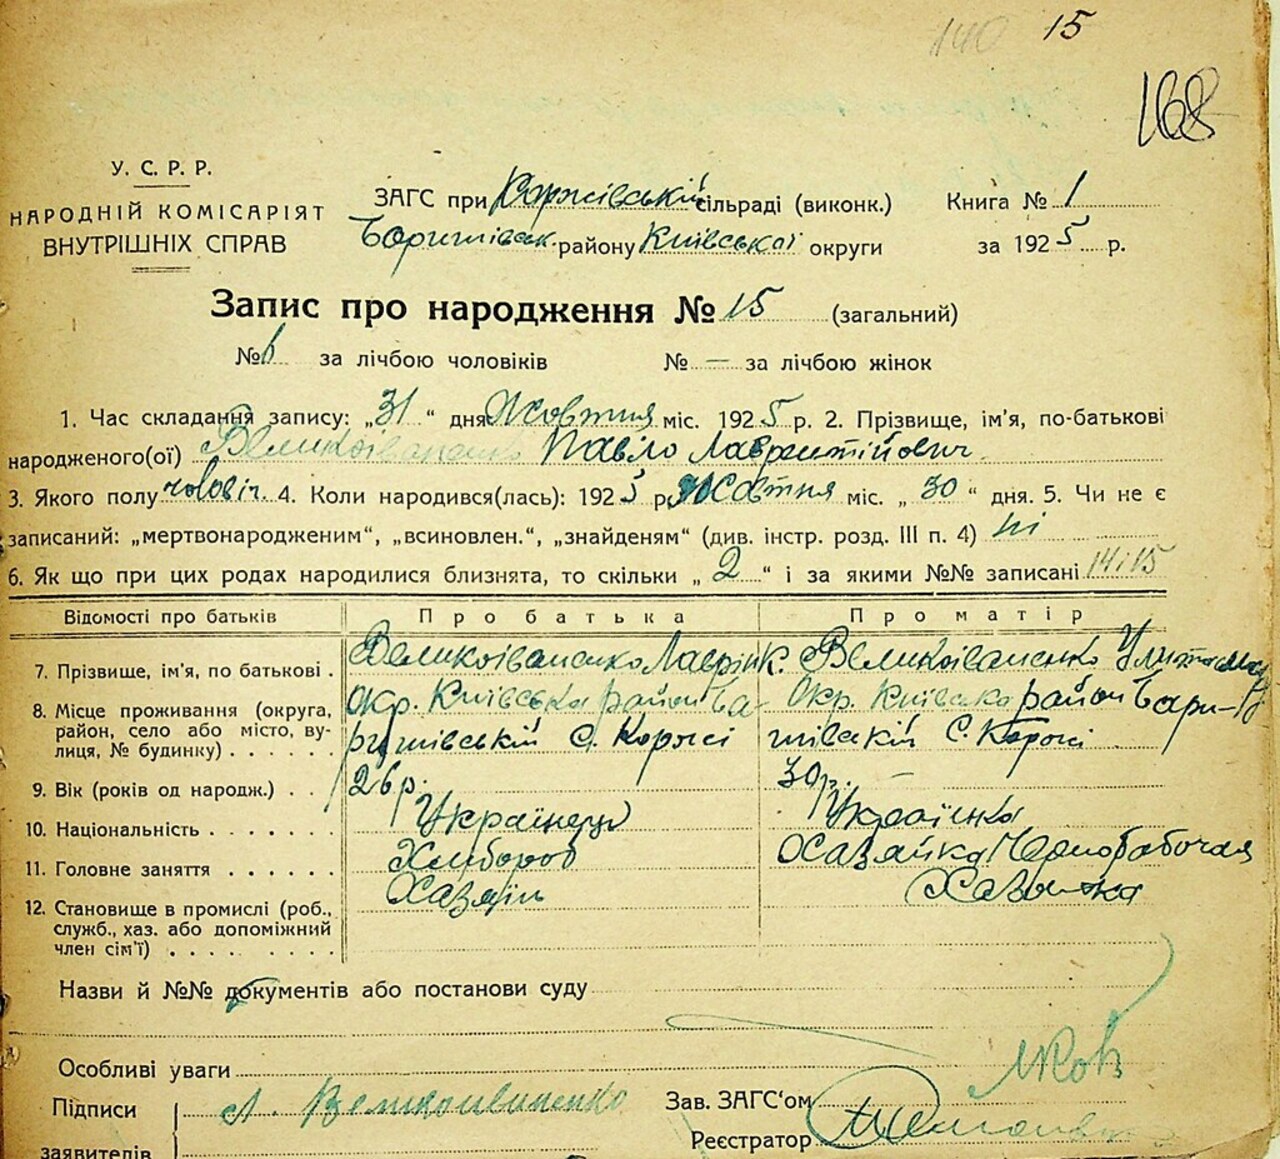 140 15
168
У. С. Р. Р.
НАРОДНІЙ КОМІСАРІЯТ
ВНУТРІШНІХ СПРАВ
ЗАГС при Коржівській сільраді (виконк.)
Баришівськ. району Київської округи
Книга № 1
за 1925 р.
Запис про народження № 15 (загальний)
№ 6 за лічбою чоловіків № — за лічбою жінок
1. Час складання запису: „31“ дня Жовтня міс. 1925 р. 2. Прізвище, ім'я, по-батькові
народженого(ої) Великоіваненко Павло Лаврентійович
3. Якого полу чоловіч. 4. Коли народився(лась): 1925 р. Жовтня міс. „30“ дня. 5. Чи не є
записаний: „мертвонародженим“, „всиновлен.“, „знайденям“ (див. інстр. розд. III п. 4) ні
6. Як що при цих родах народилися близнята, то скільки „2“ і за якими №№ записані 14 і 15
Відомості про батьків Про батька Про матір
7. Прізвище, ім'я, по батькові . Великоіваненко Лаврін К. Великоіваненко
8. Місце проживання (округа, район, село або місто, вулиця, № будинку) . . . . . окр. Київська район Баришівській с. Коржі Окр. Київська район Баришівскій С. Коржі
9. Вік (років од народж.) . . 26 р. 30 р. —
10. Національність . . . . . . . Українець Українка
11. Головне заняття . . . . . . Хлібороб Хазяйка Чернорабочая
12. Становище в промислі (роб., служб., хаз. або допоміжний член сім'ї) . . . . . . . . . Хазяїн Хазяйка
Назви й №№ документів або постанови суду
Особливі уваги
Підписи
заявителів
Л. Великоіваненко
Зав. ЗАГС'ом
Реєстратор